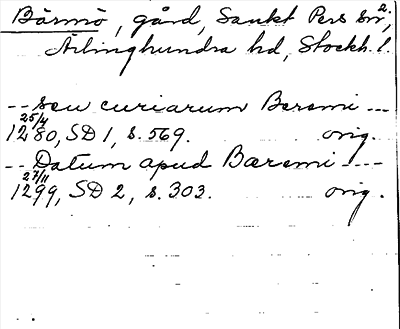 Bärmö, gård, Sankt Pers sn², 
Ärlinghundra hd, Stockh. l.
-- seu curiarum Beremi ---
25/4
1280, SD 1, s. 569. orig.
-- Datum apud Bæremi ----
27/11
1299, SD 2, s. 303. orig.